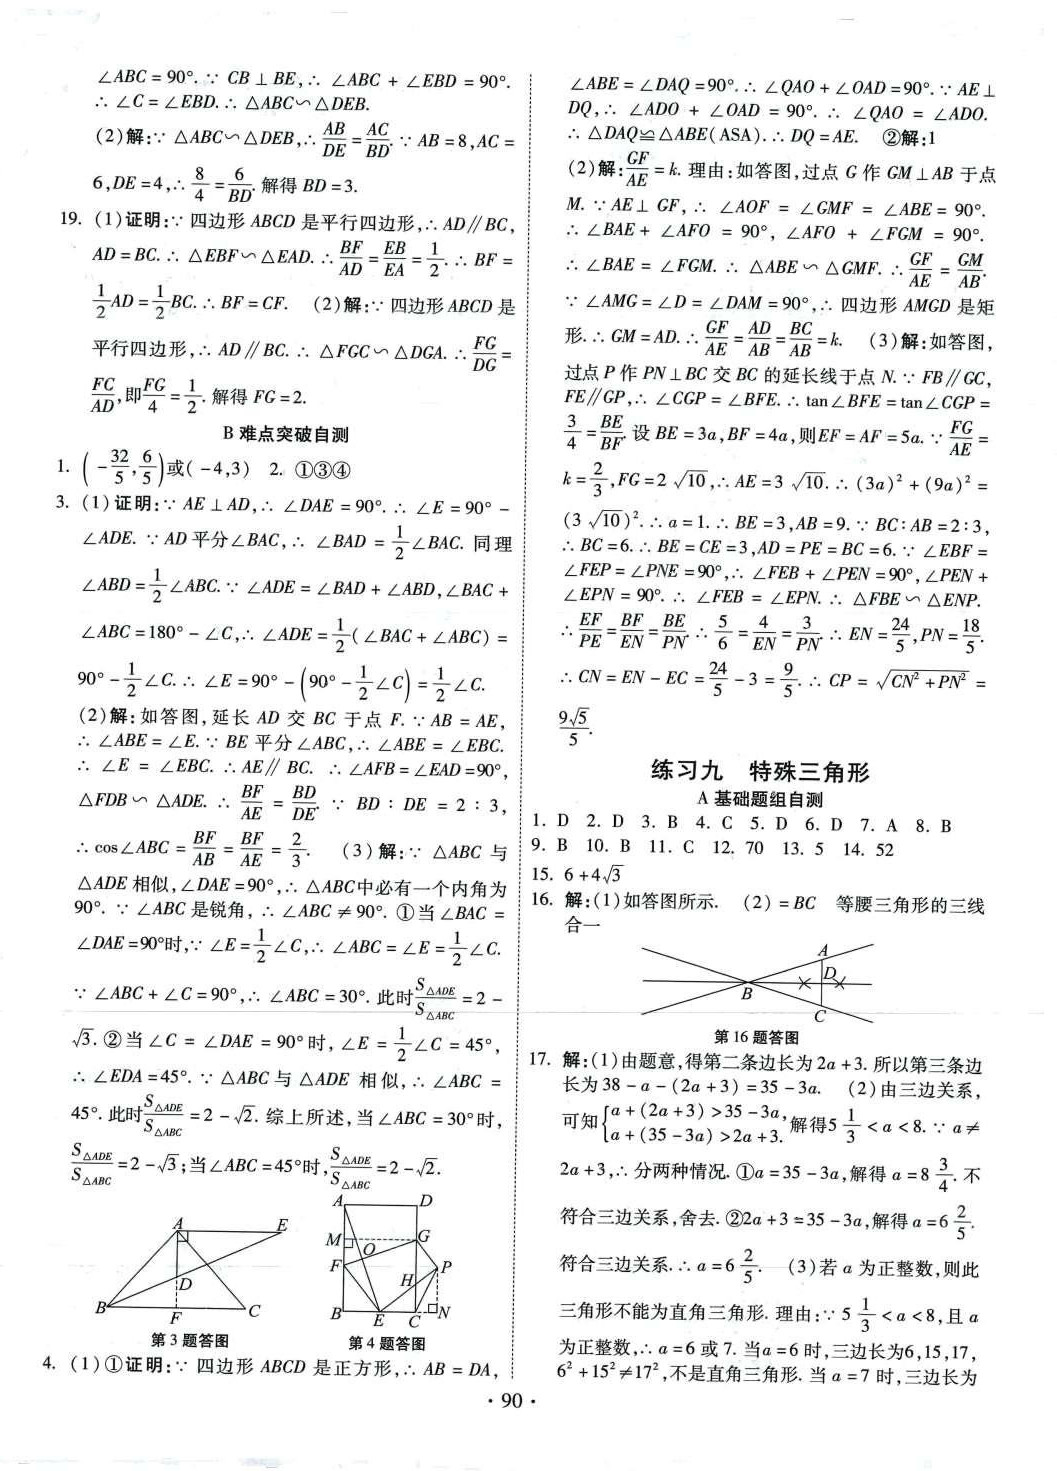 ∠ABC = 90°. ∵ CB ⊥ BE,∴ ∠ABC + ∠EBD = 90°.
∴ ∠C = ∠EBD. ∴ △ABC∽△DEB.
(2)解:∵ △ABC∽△DEB,∴ AB/DE = AC/BD. ∵ AB = 8,AC =
6,DE = 4,∴ 8/4 = 6/BD. 解得 BD = 3.
19. (1)证明:∵ 四边形 ABCD 是平行四边形,∴ AD∥BC,
AD = BC. ∴ △EBF∽△EAD. ∴ BF/AD = EB/EA = 1/2. ∴ BF =
1/2 AD = 1/2 BC. ∴ BF = CF. (2)解:∵ 四边形 ABCD 是
平行四边形,∴ AD∥BC. ∴ △FGC∽△DGA. ∴ FG/DG =
FC/AD,即 FG/4 = 1/2. 解得 FG = 2.
B 难点突破自测
1. (-32/5, 6/5)或(-4,3) 2. ①③④
3. (1)证明:∵ AE⊥AD,∴ ∠DAE = 90°. ∴ ∠E = 90° -
∠ADE. ∵ AD 平分∠BAC,∴ ∠BAD = 1/2 ∠BAC. 同理
∠ABD = 1/2 ∠ABC. ∵ ∠ADE = ∠BAD + ∠ABD,∠BAC +
∠ABC = 180° - ∠C,∴ ∠ADE = 1/2 (∠BAC + ∠ABC) =
90° - 1/2 ∠C. ∴ ∠E = 90° - (90° - 1/2 ∠C) = 1/2 ∠C.
(2)解:如答图,延长 AD 交 BC 于点 F. ∵ AB = AE,
∴ ∠ABE = ∠E. ∵ BE 平分∠ABC,∴ ∠ABE = ∠EBC.
∴ ∠E = ∠EBC. ∴ AE∥BC. ∴ ∠AFB = ∠EAD = 90°,
△FDB∽△ADE. ∴ BF/AE = BD/DE. ∵ BD : DE = 2 : 3,
∴ cos∠ABC = BF/AB = BF/AE = 2/3. (3)解:∵ △ABC 与
△ADE 相似,∠DAE = 90°,∴ △ABC中必有一个内角为
90°. ∵ ∠ABC 是锐角,∴ ∠ABC ≠ 90°. ①当∠BAC =
∠DAE = 90°时,∵ ∠E = 1/2 ∠C,∴ ∠ABC = ∠E = 1/2 ∠C.
∵ ∠ABC + ∠C = 90°,∴ ∠ABC = 30°. 此时 S△ADE/S△ABC = 2 -
√3. ②当∠C = ∠DAE = 90°时,∠E = 1/2 ∠C = 45°,
∴ ∠EDA = 45°. ∵ △ABC 与 △ADE 相似,∴ ∠ABC =
45°. 此时 S△ADE/S△ABC = 2 - √2. 综上所述,当∠ABC = 30°时,
S△ADE/S△ABC = 2 - √3;当∠ABC = 45°时, S△ADE/S△ABC = 2 - √2.
A E D B F C
第 3 题答图
A D M G O F H P B E C N
第 4 题答图
4. (1)①证明:∵ 四边形 ABCD 是正方形,∴ AB = DA,
∠ABE = ∠DAQ = 90°. ∴ ∠QAO + ∠OAD = 90°. ∵ AE⊥
DQ,∴ ∠ADO + ∠OAD = 90°. ∴ ∠QAO = ∠ADO.
∴ △DAQ≌△ABE(ASA). ∴ DQ = AE. ②解:1
(2)解: GF/AE = k. 理由:如答图,过点 G 作 GM⊥AB 于点
M. ∵ AE⊥GF,∴ ∠AOF = ∠GMF = ∠ABE = 90°.
∴ ∠BAE + ∠AFO = 90°, ∠AFO + ∠FGM = 90°.
∴ ∠BAE = ∠FGM. ∴ △ABE∽△GMF. ∴ GF/AE = GM/AB.
∵ ∠AMG = ∠D = ∠DAM = 90°,∴ 四边形 AMGD 是矩
形. ∴ GM = AD. ∴ GF/AE = AD/AB = BC/AB = k. (3)解:如答图,
过点 P 作 PN⊥BC 交 BC 的延长线于点 N. ∵ FB∥GC,
FE∥GP,∴ ∠CGP = ∠BFE. ∴ tan∠BFE = tan∠CGP =
3/4 = BE/BF. 设 BE = 3a,BF = 4a,则EF = AF = 5a. ∵ FG/AE =
k = 2/3,FG = 2√10,∴ AE = 3√10. ∴ (3a)² + (9a)² =
(3√10)². ∴ a = 1. ∴ BE = 3,AB = 9. ∵ BC : AB = 2 : 3,
∴ BC = 6. ∴ BE = CE = 3,AD = PE = BC = 6. ∵ ∠EBF =
∠FEP = ∠PNE = 90°,∴ ∠FEB + ∠PEN = 90°,∠PEN +
∠EPN = 90°. ∴ ∠FEB = ∠EPN. ∴ △FBE∽△ENP.
∴ EF/PE = BF/EN = BE/PN. ∴ 5/6 = 4/EN = 3/PN. ∴ EN = 24/5,PN = 18/5.
∴ CN = EN - EC = 24/5 - 3 = 9/5. ∴ CP = √(CN² + PN²) =
9√5/5.
练习九 特殊三角形
A 基础题组自测
1. D 2. D 3. B 4. C 5. D 6. D 7. A 8. B
9. B 10. B 11. C 12. 70 13. 5 14. 52
15. 6 + 4√3
16. 解:(1)如答图所示. (2) = BC 等腰三角形的三线
合一
A D B C
第 16 题答图
17. 解:(1)由题意,得第二条边长为 2a + 3. 所以第三条边
长为 38 - a - (2a + 3) = 35 - 3a. (2)由三边关系,
可知{a + (2a + 3) > 35 - 3a, a + (35 - 3a) > 2a + 3. 解得5 1/3 < a < 8. ∵ a ≠
2a + 3,∴ 分两种情况. ①a = 35 - 3a,解得 a = 8 3/4. 不
符合三边关系,舍去. ②2a + 3 = 35 - 3a,解得 a = 6 2/5.
符合三边关系. ∴ a = 6 2/5. (3)若 a 为正整数,则此
三角形不能为直角三角形. 理由:∵ 5 1/3 < a < 8,且 a
为正整数,∴ a = 6 或 7. 当a = 6 时,三边长为6,15,17,
6² + 15² ≠ 17²,不是直角三角形. 当 a = 7 时,三边长为
· 90 ·